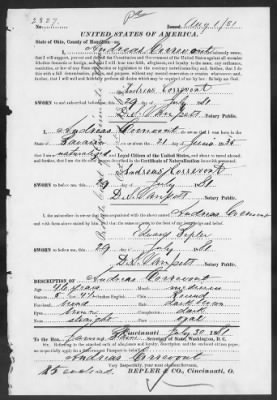 2827.
No. Issued, Aug 1/81
UNITED STATES OF AMERICA.
State of Ohio, County of Hamilton—ss.
I, Andreas Correvont do solemnly swear,
that I will support, protect and defend the Constitution and Government of the United States against all enemies,
whether domestic or foreign; and that I will bear true faith, allegiance, and loyalty to the same, any ordinance,
resolution or law of any State Convention or Legislature to the contrary notwithstanding; and further, that I do
this with a full determination, pledge, and purpose, without any mental reservation or evasion whatsoever; and,
further, that I will well and faithfully perform all the duties which may be required of me by law. So help me God.
Andreas Correvont
SWORN to and subscribed before me, this 29 day
of July 1881.
Notary Public.
I, Andreas Correvont do swear that I was born in the
State of Bavaria on the 21 of June 1835
naturalized Loyal Citizen of the United States, and about to travel abroad
and further, that I am the person described in the Certificate of Naturalization
Andreas Correvont
SWORN to before me, this 29 day
of July 1881.
Notary Public.
I, the undersigned, do swear that I am acquainted with the above named Andreas Correvont
and with facts above stated by him
SWORN to before me, this 29 day
of July 1881
Notary Public.
DESCRIPTION OF Andreas Correvont
Age, 46 years Mouth, medium
Stature, Chin, Round
Forehead, Hair, dark brown
Eyes, brown Complexion, dark
Nose, straight Face, oval
Cincinnati July 30 1881
To the Hon. James Blaine Secretary of State, Washington, D. C.
Sir: Referring to the attached oath of allegiance and loyalty, description, and the certified evidence of citizenship, now on file,
respectfully apply for a Government Passport
Andreas Correvont
$5 enclosed REPLER & CO., Cincinnati, O.